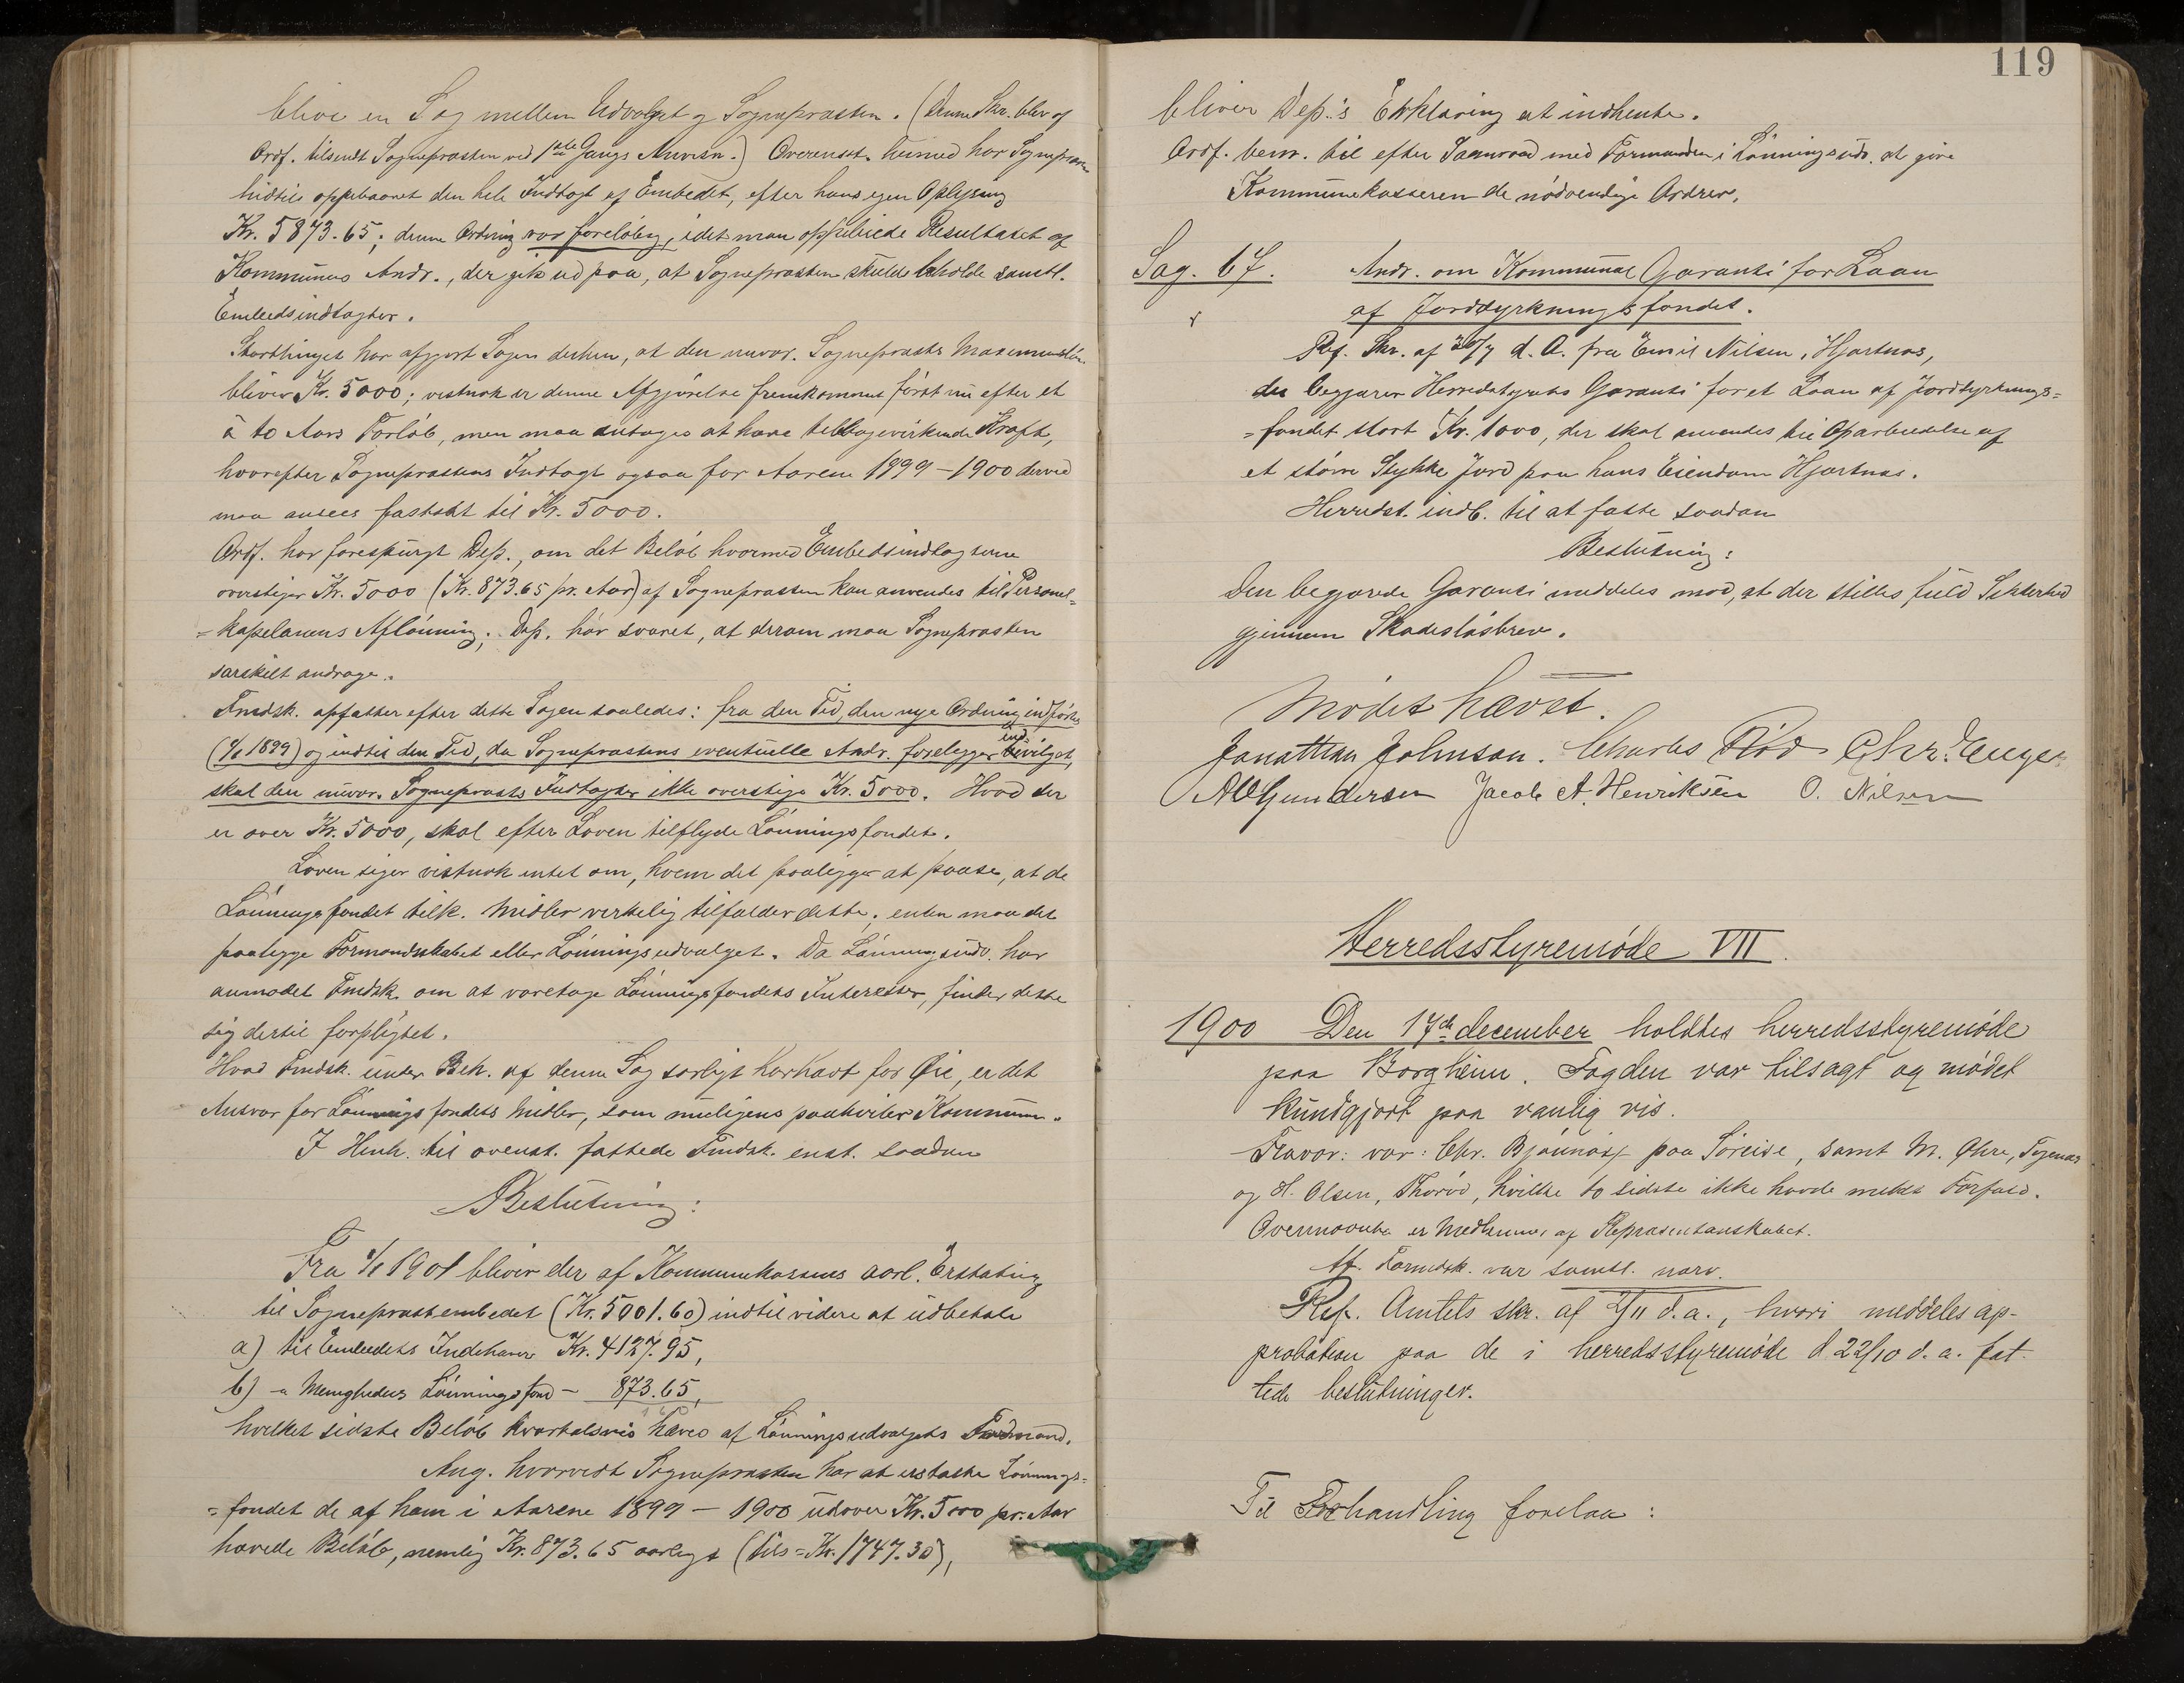 blive en Sag mellem Udvalget og Sognepræsten. (Denne Skr. blev af
Ordf. tilsendt Sognepræsten ved 1ste Gangs Anvisn.) Overenst. hermed har Sognepræsten
hidtil oppebaaret den hele Indtægt af Embedet, efter hans egen Oplysning
Kr. 5873.65; denne Ordning var foreløbig, idet man oppebiede Resultatet af
Kommunens Andr., der gik ud paa, at Sognepræsten skulde beholde samtl.
Embedsindtægter.
Storthinget har afgjort Sagen derhen, at den nuvær. Sognepræsts Maximumsløn
bliver Kr. 5000; vistnok er denne Afgjørelse fremkommet først nu efter et
à to Aars Forløb, men maa antages at have tilbagevirkende Kraft,
hvorefter Sognepræstens Indtægt ogsaa for Aarene 1899-1900 derved
maa ansees fastsat til Kr. 5000.
Ordf. har forespurgt Dep., om det Beløb hvormed Embedsindtægterne
overstiger Kr. 5000 (Kr. 873.65 pr. Aar) af Sognepræsten kan anvendes til Personel-
=kapelanens Aflønning; Dep. har svaret, at derom maa Sognepræsten
særskilt andrage.
Fmdsk. opfatter efter dette Sagen saaledes: fra den Tid, den nye Ordning indførtes
(1/1 1899) og indtil den Tid, da Sognepræstens eventuelle Andr. foreligger indvilget,
skal den nuvær. Sognepræsts Indtægter ikke overstige Kr. 5000. Hvad der
er over Kr. 5000, skal efter Loven tilflyde Lønningsfondet.
Loven siger vistnok intet om, hvem det paaligger at paase, at de
Lønningsfondet tilk. Midler virkelig tilfalder dette; enten maa det
paaligge Formandskabet eller Lønningsudvalget. Da Lønningsudv. har
anmodet Fmdsk. om at varetage Lønningsfondets Interesser, finder dette
sig dertil forpligtet.
Hvad Fmdsk. under Beh. af denne Sag særligt har havt for Øie, er det
Ansvar for Lønningsfondets Midler, som muligens paahviler Kommunen.
I Henh. til ovenst. fattede Fmdsk. enst. saadan
Beslutning:
Fra 1/1 1901 bliver der af Kommunekassens aarl. Erstatning
til Sognepræstembedet (Kr. 5001.60) indtil videre at udbetale
a) til Embedets Indehaver Kr. 4127.95,
b) - Menighedens Lønningsfond - 873.65,
hvilket sidste Beløb kvartalsvis hæves af Lønningsudvalgets Formand.
Ang. hvorvidt Sognepræsten har at erstatte Lønnings=
=fondet de af ham i Aarene 1899 - 1900 udover Kr. 5000 pr. Aar
hævede Beløb, nemlig Kr. 873.65 aarligt (tils = Kr. 1747.30),
119
bliver Dep.'s Erklæring at indhente.
Ordf. bem. til efter Samraad med Formanden i Lønningsudv. at give
Kommunekassereren de nødvendige Ordrer.
Sag. 67. Andr. om Kommunal Garanti for Laan
af Jorddyrkningsfondet.
Ref. Skr. af 30/7 d. A. fra Emil Nilsen, Hjertnæs,
der begjærer Herredstyrets Garanti for et Laan af Jorddyrknings=
=fondet stort Kr. 1000, der skal anvendes til Oparbeidelse af
et større Stykke Jord paa hans Eiendom Hjertnæs.
Herredst. indb. til at fatte saadan
Beslutning:
Den begjærede Garanti meddeles mod, at der stilles fuld Sikkerhed
gjennem Skadesløsbrev.
Mødet hævet.
Jonathan Johnson. Charles Rød Chr. Enger
A Gundersen Jacob A. Henriksen O. Nilsen
Herredsstyremøde VII.
1900 Den 17de december holdtes herredsstyremøde
paa Borgheim. Fogden var tilsagt og mødet
kundgjort paa vanlig vis.
Fravær: var: Chr. Bjønnæs paa Søreise, samt M. Øhre,
og H. Olsen, Thorød, hvilke to sidste ikke havde meldt Forfald.
Ovennævnte er Medlemmer af Repræsentanskabet.
Af Formdsk. var samtl. nærv.
Ref. Amtets skr. af 2/11 d.a., hvori meddeles ap-
probation paa de i herredsstyremøde d. 22/10 d.a. fat-
tede beslutninger.
Til Forhandling forelaa: